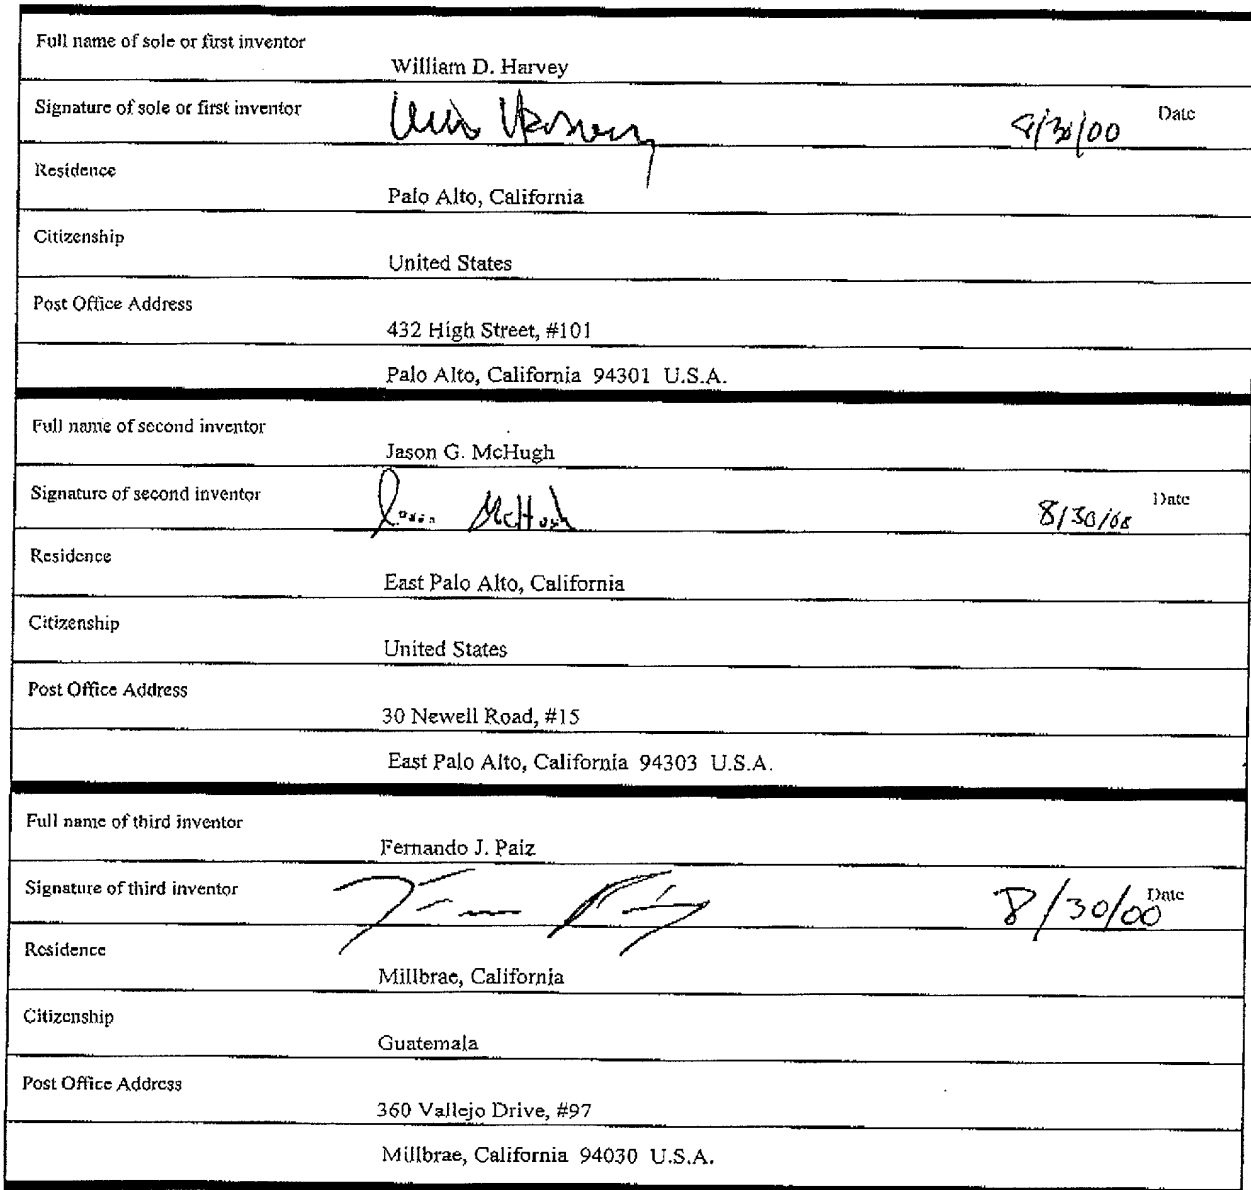 Full name of sole or first inventor
William D. Harvey
Signature of sole or first inventor
Date
8/30/00
Residence
Palo Alto, California
Citizenship
United States
Post Office Address
432 High Street, #101
Palo Alto, California 94301 U.S.A.
Full name of second inventor
Jason G. McHugh
Signature of second inventor
Jason McHugh
8/30/00
Date
Residence
East Palo Alto, California
Citizenship
United States
Post Office Address
30 Newell Road, #15
East Palo Alto, California 94303 U.S.A.
Full name of third inventor
Fernando J. Paiz
Signature of third inventor
8/30/00
Date
Residence
Millbrae, California
Citizenship
Guatemala
Post Office Address
360 Vallejo Drive, #97
Millbrae, California 94030 U.S.A.